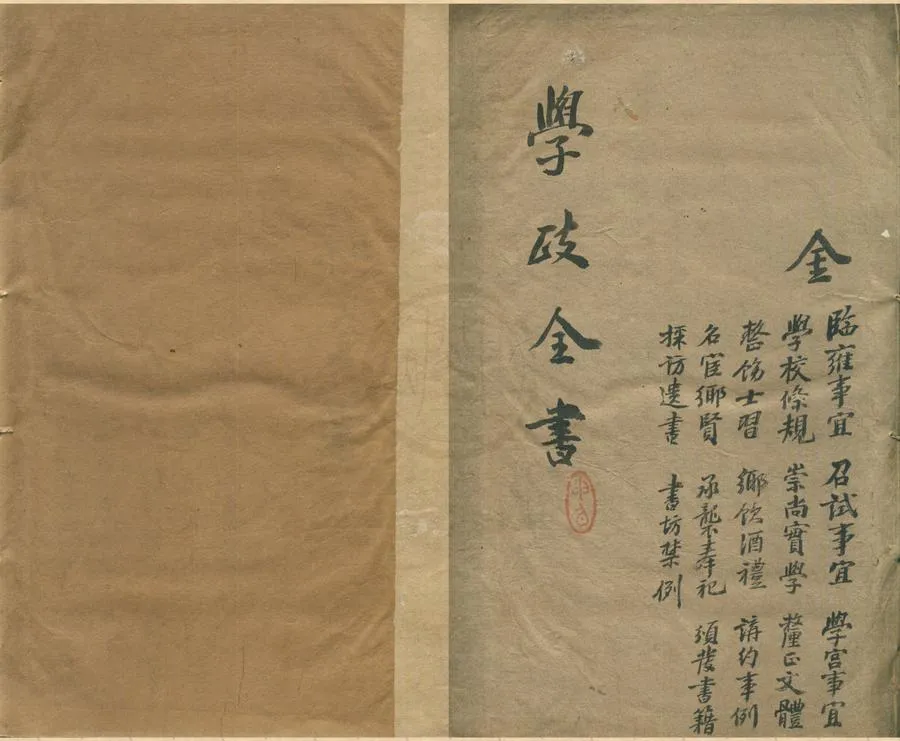 金
臨雍事宜 召試事宜 學宮事宜
學校條規 崇尚實學 釐正文體
整飭士習 鄉飲酒禮 講約事例
名宦鄉賢 承襲奉祀 頒發書籍
採訪遺書 書坊禁例
學政全書